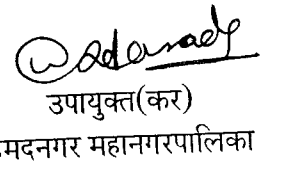 उपायुक्त(कर)
मदनगर महानगरपालिका